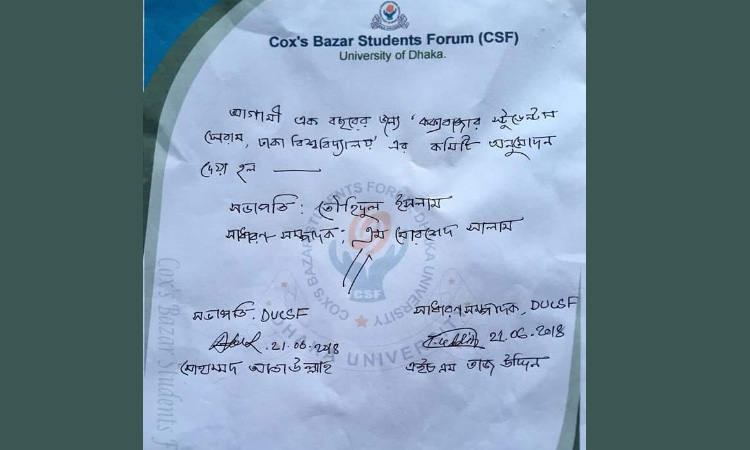 Cox's Bazar Students Forum (CSF)
University of Dhaka.
আগামী এক বছরের জন্য 'কক্সবাজার স্টুডেন্টস
ফোরাম, ঢাকা বিশ্ববিদ্যালয়' এর কমিটি অনুমোদন
দেয়া হল
সভাপতি: তৌহিদুল ইসলাম
সাধারণ সম্পাদক: এম মোরশেদ আলাম
সভাপতি, DUCSF
সাধারণ সম্পাদক, DUCSF
21.06.2018
21.06.2018
মোহাম্মদ আতাউল্লাহ
এইচ এম তাজ উদ্দিন
CSF
Cox's Bazar Students